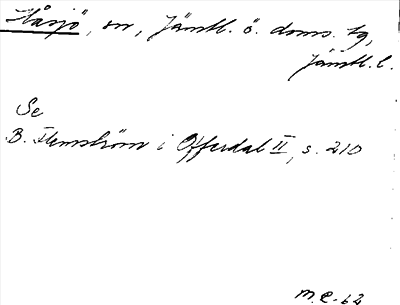 Håsjö, sn, Jämtl. ö. doms. tg,
Jämtl. l.
Se
B. Flemström i Offerdal II, s. 210
M.E. 62